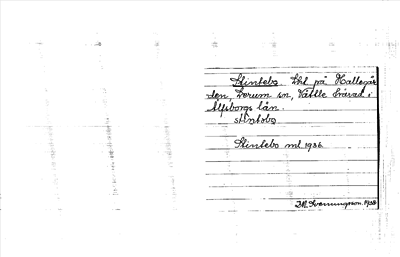 Stintebo. Lht på Hallegår
den, Lerum sn, Vättle härad i
Älfsborgs län.
stintebo
Stintebo ml 1936
1938